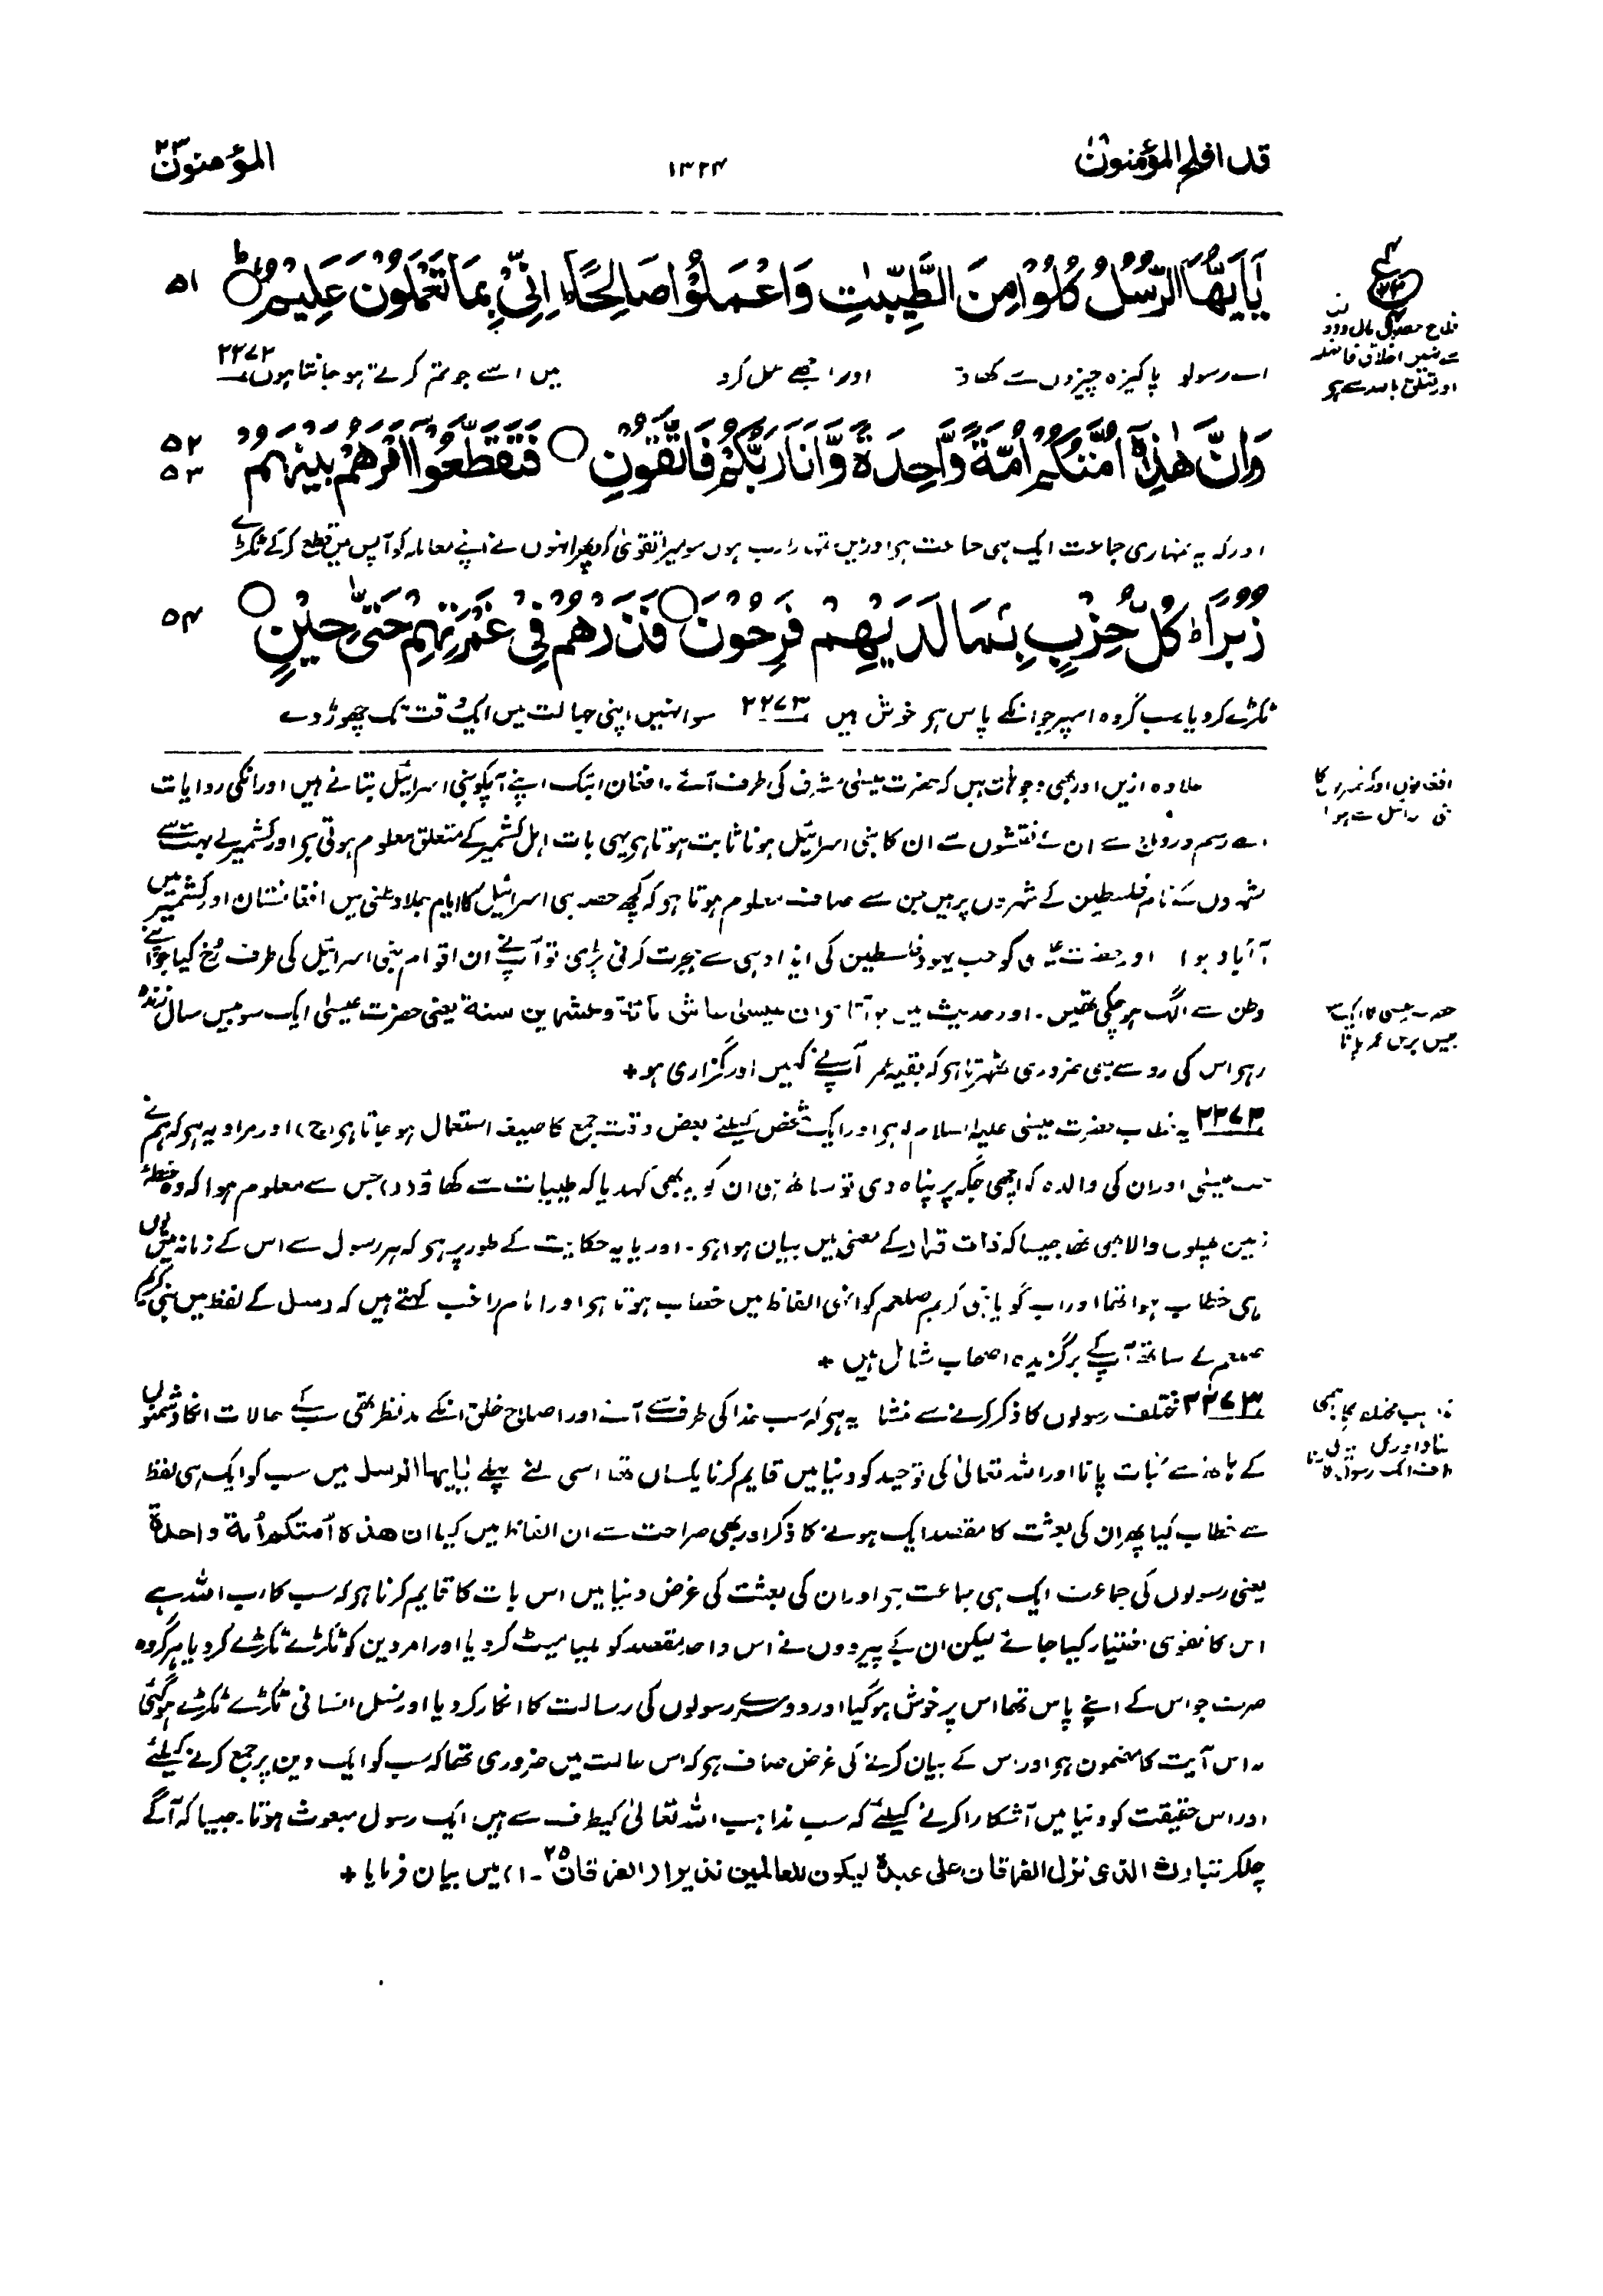 قد افلح المؤمنون ۱۸
۱۳۲۴
المؤمنون ۲۳
يٰۤاَيُّهَا الرُّسُلُ كُلُوْا مِنَ الطَّيِّبٰتِ وَاعْمَلُوْا صَالِحًا ؕ اِنِّيْ بِمَا تَعْمَلُوْنَ عَلِيْمٌ ؕ ۵۱
اے رسولو پاکیزہ چیزوں سے کھاؤ اور اچھے عمل کرو میں اسے جو تم کرتے ہو جانتا ہوں ۲۲۷۲
وَاِنَّ هٰذِهٖۤ اُمَّتُكُمْ اُمَّةً وَّاحِدَةً وَّاَنَا رَبُّكُمْ فَاتَّقُوْنِ ○ فَتَقَطَّعُوْۤا اَمْرَهُمْ بَيْنَهُمْ ۵۲ ۵۳
اور کہ یہ تمہاری جماعت ایک ہی جماعت ہو اور میں تمہارا رب ہوں سو میرا تقویٰ کرو پھر انہوں نے اپنے معاملہ کو آپس میں قطع کر کے ٹکڑے
زُبُرًا ؕ كُلُّ حِزْبٍۭ بِمَا لَدَيْهِمْ فَرِحُوْنَ ○ فَذَرْهُمْ فِيْ غَمْرَتِهِمْ حَتّٰى حِيْنٍ ○ ۵۴
ٹکڑے کر دیا سب گروہ اسپر جو انکے پاس ہو خوش ہیں ۲۲۷۳ سو انہیں اپنی جہالت میں ایک وقت تک چھوڑ دے
علاوہ ازیں اور بھی وجوہات ہیں کہ حضرت عیسیٰ مشرق کی طرف آئے۔ افغان ابتک اپنے آپکو بنی اسرائیل بتاتے ہیں اور انکی روایات
رسم و رواج سے ان کے نقشوں سے ان کا بنی اسرائیل ہونا ثابت ہوتا ہو یہی بات اہل کشمیر کے متعلق معلوم ہوتی ہو اور کشمیر کے بہت سے
شہروں کے نام فلسطین کے شہروں پر ہیں جن سے صاف معلوم ہوتا ہو کہ کچھ حصہ بنی اسرائیل کا ایام جلاوطنی میں افغانستان اور کشمیر میں
آ آباد ہوا اور حضرت عیسیٰ کو جب یہود فلسطین کی ایذا دہی سے ہجرت کرنی پڑی تو آپ نے ان اقوام بنی اسرائیل کی طرف رخ کیا جو اپنے
وطن سے الگ ہو چکی تھیں۔ اور حدیث میں ہو آتا ان عیسیٰ عاش مائة وعشرین سنة یعنی حضرت عیسیٰ ایک سو بیس سال زندہ
رہو اس کی رو سے بھی ضروری ٹھہرتا ہو کہ بقیہ عمر آپ نے کہیں اور گزاری ہو +
۲۲۷۲ یہ خطاب حضرت عیسیٰ علیہ السلام کو ہو اور ایک شخص کیلئے بعض وقت جمع کا صیغہ استعمال ہو جاتا ہو (ج) اور مراد یہ ہو کہ ہم نے
جب عیسیٰ اور ان کی والدہ کو اچھی جگہ پر پناہ دی تو ساتھ ہی ان کو یہ بھی کہدیا کہ طیبات سے کھاؤ (د) جس سے معلوم ہوا کہ وہ خطہ
زمین پھلوں والا بھی تھا جیسا کہ ذات قرار کے معنی میں بیان ہوا ہو۔ اور یا یہ حکایت کے طور پر ہو کہ ہر رسول سے اس کے زمانہ میں یوں
ہی خطاب ہوا تھا اور اب گویا نبی کریم صلعم کو انہی الفاظ میں خطاب ہوتا ہو اور امام راغب کہتے ہیں کہ رسل کے لفظ میں نبی کریم
صلعم کے ساتھ آپ کے برگزیدہ اصحاب شامل ہیں +
۲۲۷۳ مختلف رسولوں کا ذکر کرنے سے منشا یہ ہو کہ سب خدا کی طرف سے آئے اور اصلاح خلق انکے مدنظر تھی سب کے حالات انکا دشمنوں
کے ہاتھ سے نجات پانا اور اللہ تعالیٰ کی توحید کو دنیا میں قایم کرنا یکساں تھا اسی لئے پہلے یٰایها الرسل میں سب کو ایک ہی لفظ
سے خطاب کیا پھر ان کی بعثت کا مقصد ایک ہونے کا ذکر اور بھی صراحت سے ان الفاظ میں کیا ان هذہ امتکم امة واحدة
یعنی رسولوں کی جماعت ایک ہی جماعت ہو اور ان کی بعثت کی غرض دنیا میں اس بات کا قایم کرنا ہو کہ سب کا رب اللہ ہے
اس کا تقویٰ اختیار کیا جائے لیکن ان کے پیرووں نے اس واحد مقصد کو ملیامیٹ کر دیا اور امر دین کو ٹکڑے ٹکڑے کر دیا ہر گروہ
صرف جو اس کے اپنے پاس تھا اس پر خوش ہو گیا اور دوسرے رسولوں کی رسالت کا انکار کر دیا اور نسل انسانی ٹکڑے ٹکڑے ہو گئی
اس آیت کا مضمون ہو اور اس کے بیان کرنے کی غرض صاف ہو کہ اس حالت میں ضروری تھا کہ سب کو ایک دین پر جمع کرنے کیلئے
اور اس حقیقت کو دنیا میں آشکارا کرنے کیلئے کہ سب مذاہب اللہ تعالیٰ کیطرف سے ہیں ایک رسول مبعوث ہوتا۔ جیسا کہ آگے
چلکر تبارك الذی نزل الفرقان علی عبدہ لیکون للعالمین نذیرا (الفرقان ۲۵۔۱) میں بیان فرمایا +
فلاح حصول مال و
سے نہیں اخلاق فاضلہ
اور تعلق باللہ سے ہو
افغانوں اور کشمیریوں کا
بنی اسرائیل سے ہونا
حضرت عیسیٰ کا ایک سو
بیس برس عمر پانا
مذاہب مختلفہ کا ہمی